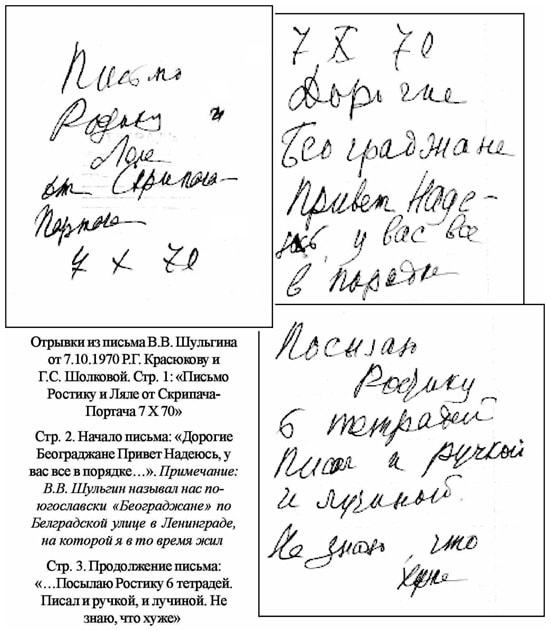 Письмо
Ростику и
Ляле
от Скрипача-
Портача
7 X 70
7 X 70
Дорогие
Београджане
Привет Наде-
юсь, у вас все
в порядке
Отрывки из письма В.В. Шульгина
от 7.10.1970 Р.Г. Красюкову и
Г.С. Шолковой. Стр. 1: «Письмо
Ростику и Ляле от Скрипача-
Портача 7 X 70»
Стр. 2. Начало письма: «Дорогие
Београджане Привет Надеюсь, у
вас все в порядке…». Примечание:
В.В. Шульгин называл нас по-
югославски «Београджане» по
Белградской улице в Ленинграде,
на которой я в то время жил
Стр. 3. Продолжение письма:
«…Посылаю Ростику 6 тетрадей.
Писал и ручкой, и лучиной. Не
знаю, что хуже»
Посылаю
Ростику
6 тетрадей
Писал и ручкой
и лучиной.
Не знаю, что
хуже